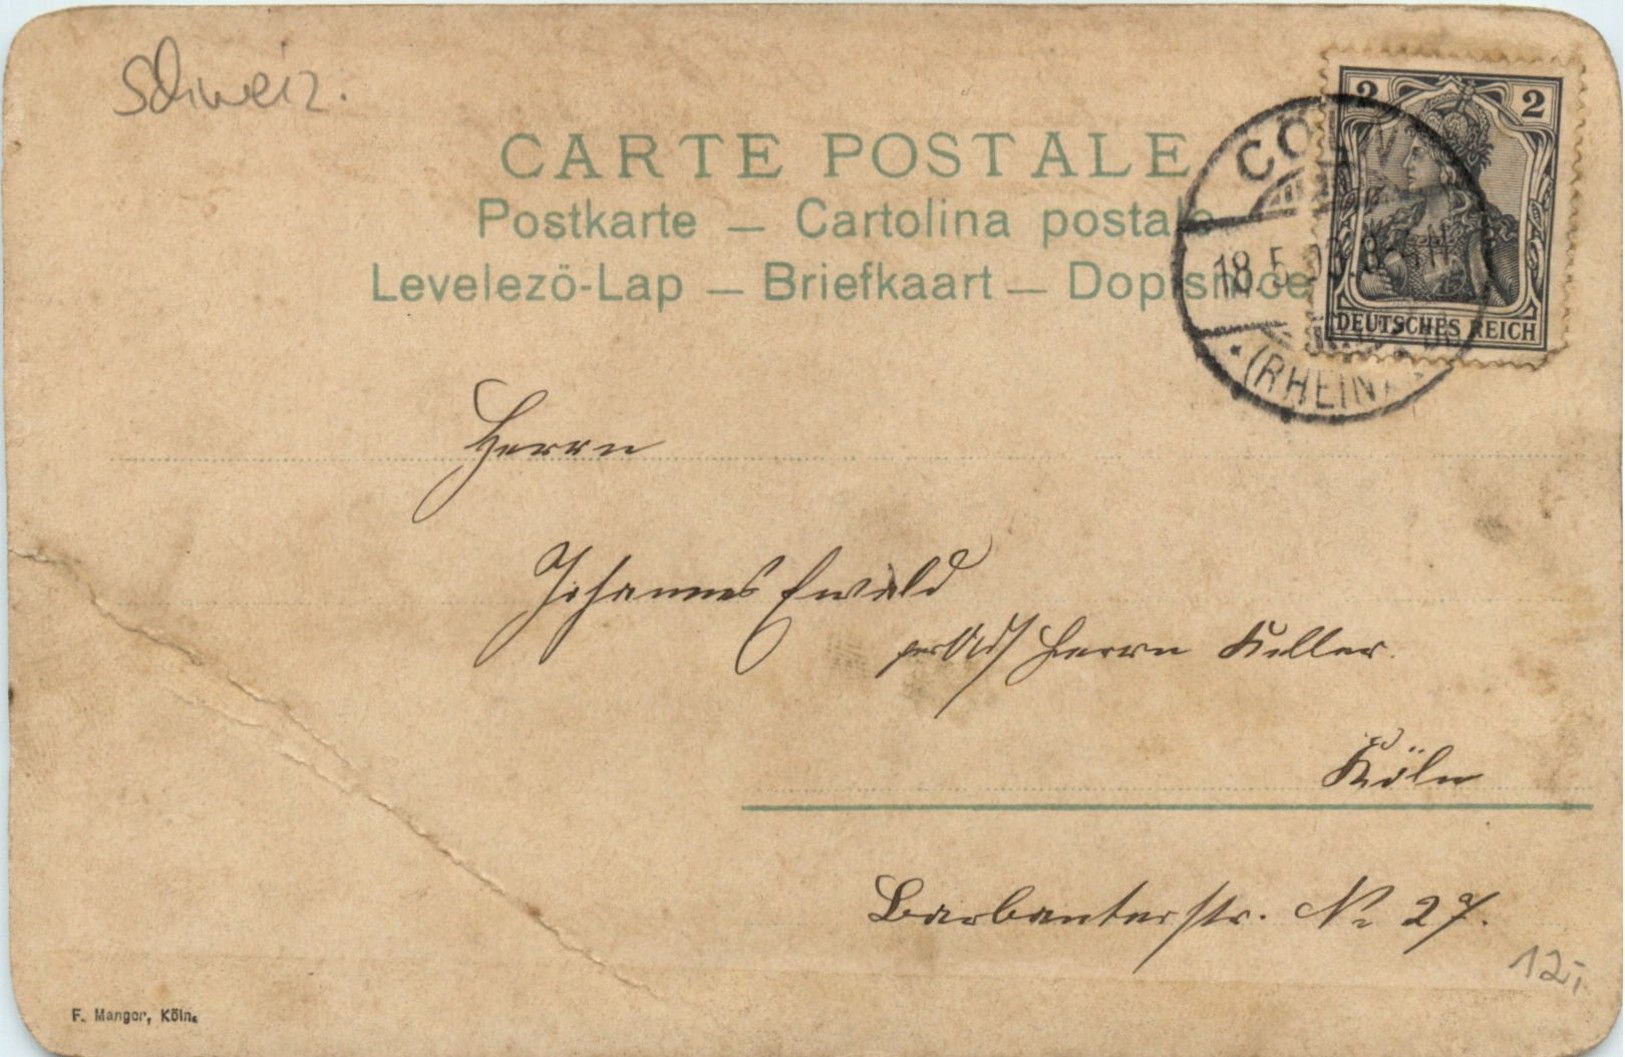 Schweiz.
CARTE POSTALE
Postkarte – Cartolina postale
Levelező-Lap – Briefkaart – Dopisnice
2 2
DEUTSCHES REICH
18.5.
(RHEIN)
Herrn
Johannes Ewald
per Ad/ Herrn Keller.
Köln
Barbanterstr. No 27.
12,-
F. Manger, Köln.